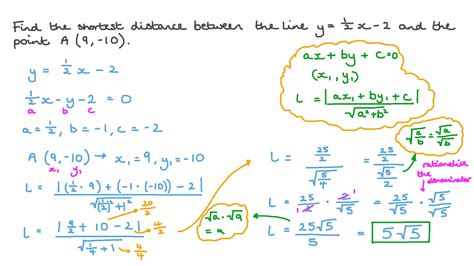 Find the shortest distance between the line y = ½x - 2 and the
point A (9, -10).
y = ½x - 2
½x - y - 2 = 0
a b c
a = ½, b = -1, c = -2
A (9, -10) → x₁ = 9, y₁ = -10
x₁ y₁
L = |(½ · 9) + (-1 · (-10)) - 2| / √((½)² + 1²)
20/2
L = |9/2 + 10 - 2| / √(¼ + 1)
4/2
4/4
√a · √a
= a
ax + by + c = 0
(x₁, y₁)
L = |ax₁ + by₁ + c| / √(a² + b²)
√(a/b) = √a/√b
L = (25/2) / √(5/4) = (25/2) / (√5/2)
rationalise
the
denominator
L = 25/2 · 2/√5 = 25/√5 · √5/√5
L = 25√5 / 5 = 5√5